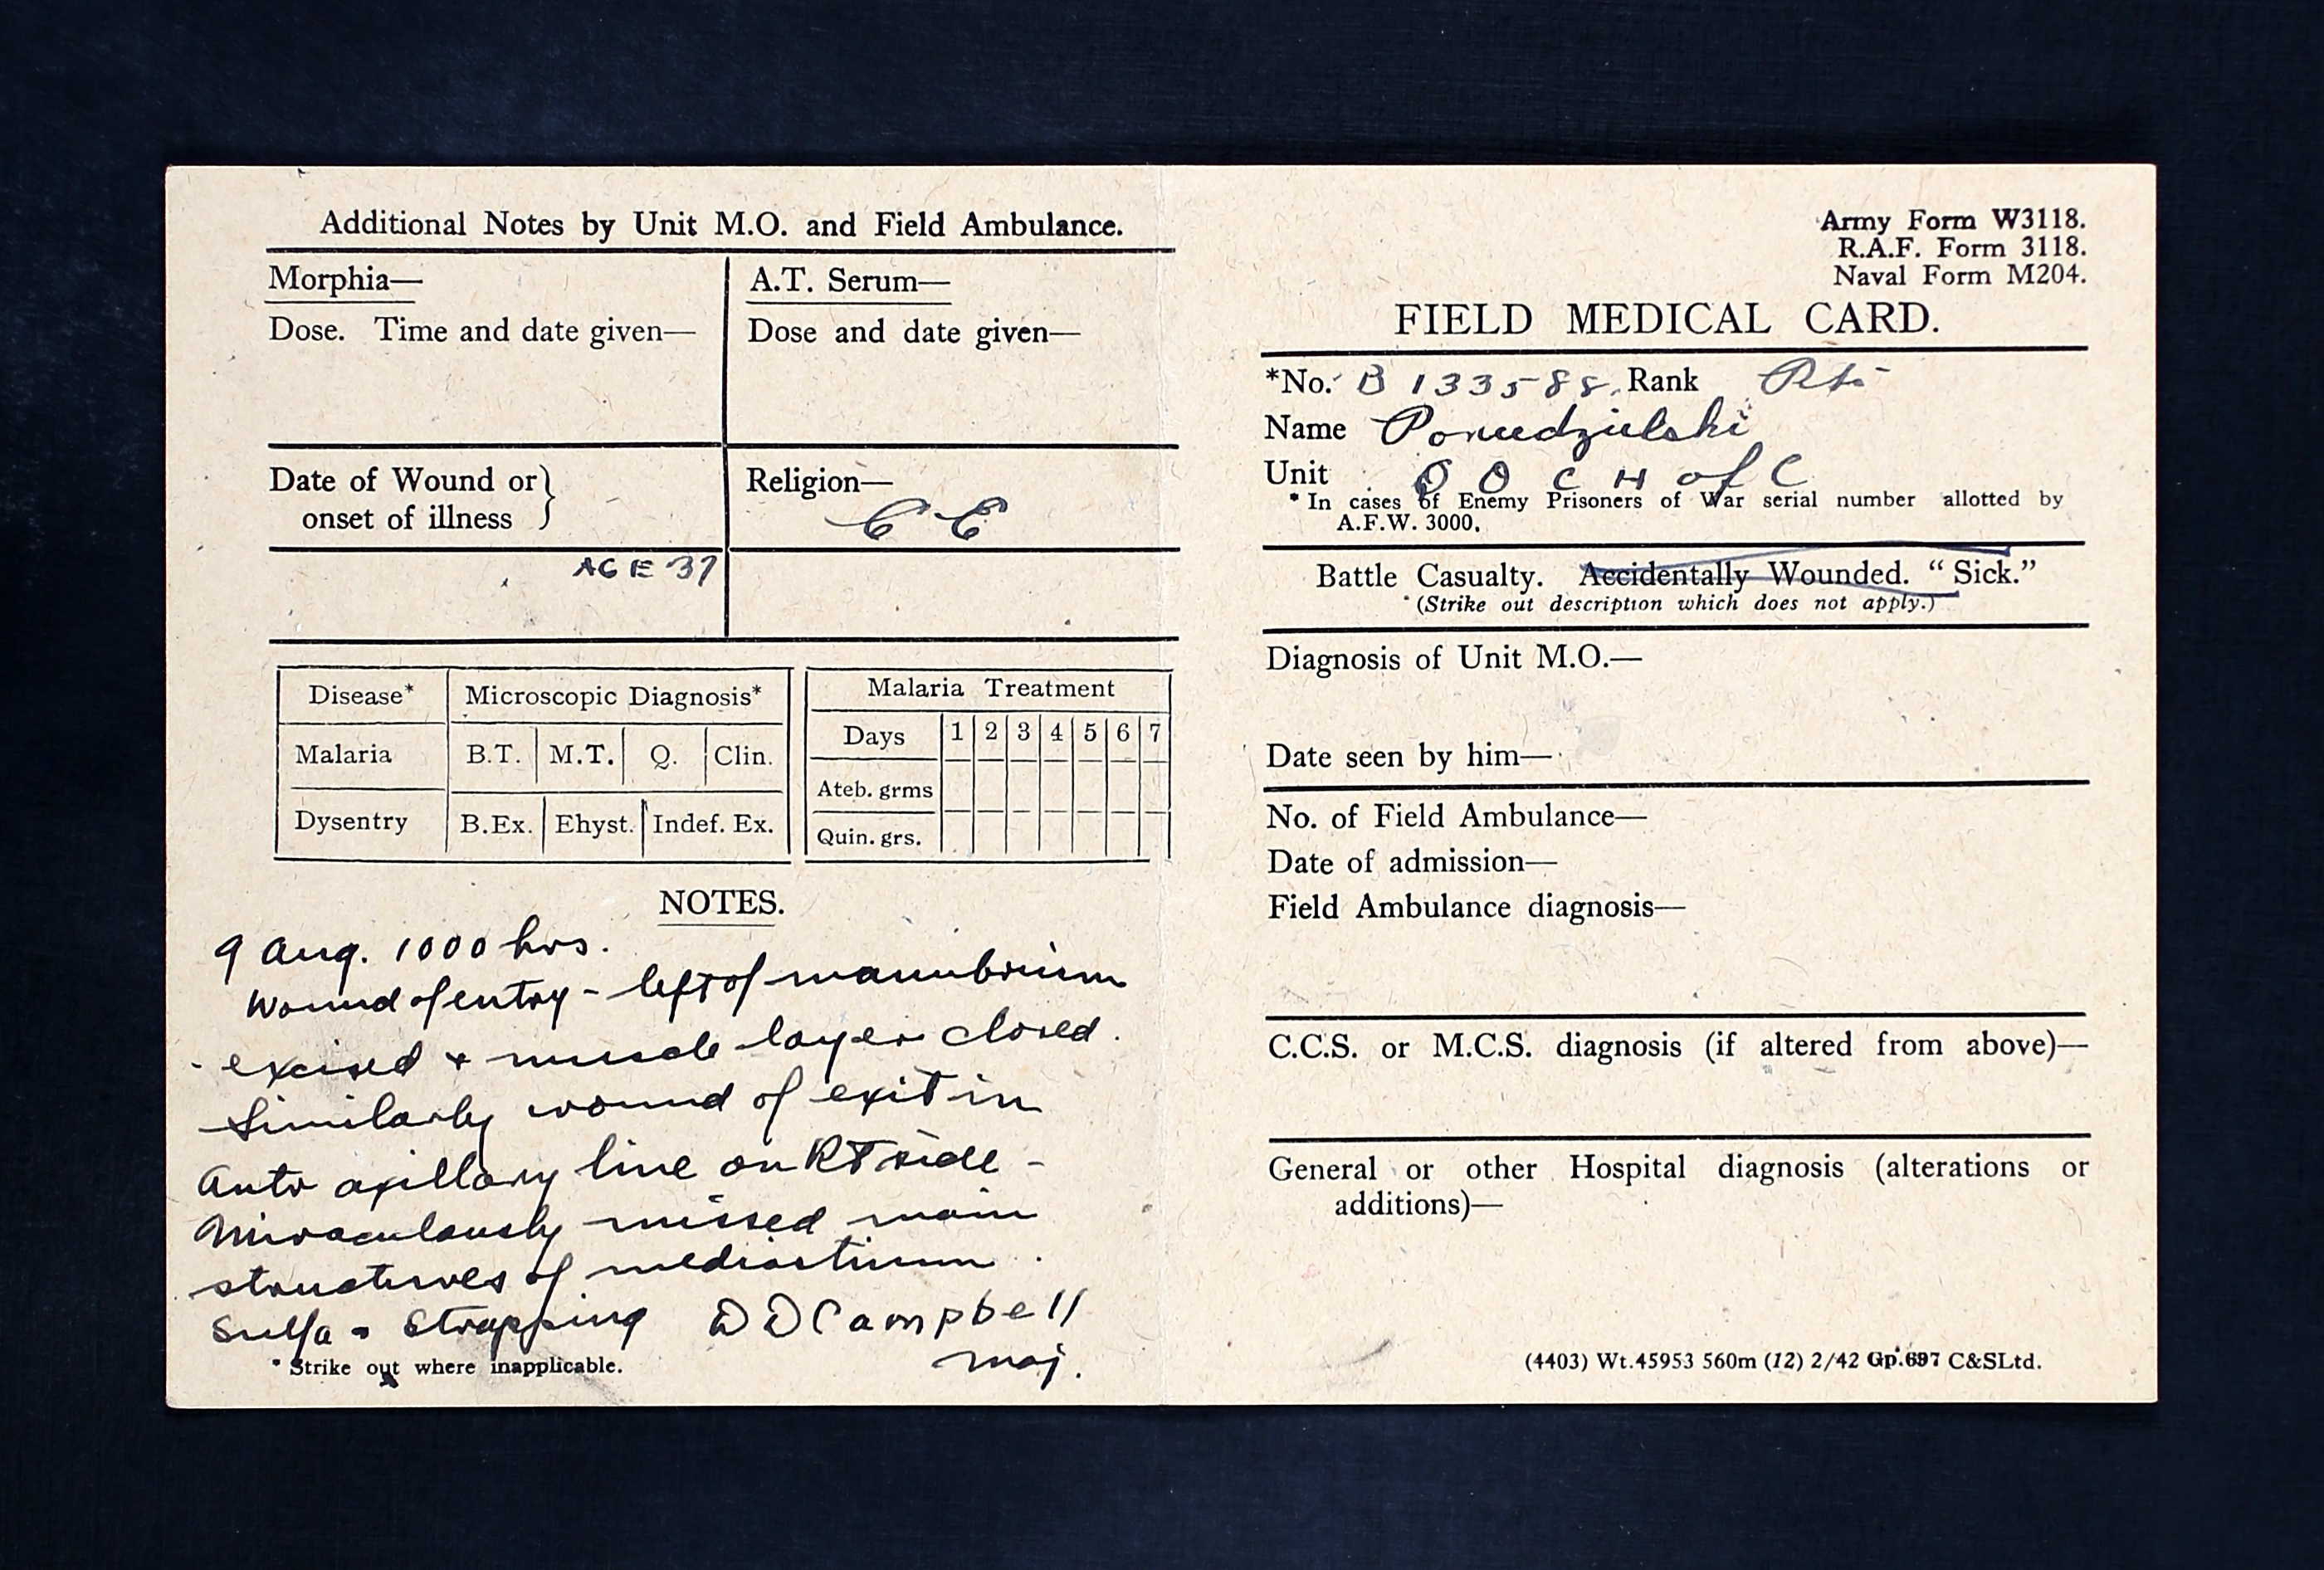 Additional Notes by Unit M.O. and Field Ambulance.
Morphia—
Dose. Time and date given—
A.T. Serum—
Dose and date given—
Date of Wound or
onset of illness
Religion—
C E
AGE 37
Disease* Microscopic Diagnosis*
Malaria B.T. M.T. Q. Clin.
Dysentry B.Ex. Ehyst. Indef. Ex.
Malaria Treatment
Days 1 2 3 4 5 6 7
Ateb. grms
Quin. grs.
NOTES.
9 Aug. 1000 hrs.
Wound of entry - left of manubrium
- excised + muscle layer closed.
Similarly wound of exit in
Antr axillary line on RT side -
Miraculously missed main
structures of mediastinum.
Sulfa - Strapping D D Campbell
Maj.
* Strike out where inapplicable.
Army Form W3118.
R.A.F. Form 3118.
Naval Form M204.
FIELD MEDICAL CARD.
*No. B 133588 Rank Pte
Name Poniedzielski
Unit Q O C H of C
* In cases of Enemy Prisoners of War serial number allotted by
A.F.W. 3000.
Battle Casualty. Accidentally Wounded. "Sick."
(Strike out description which does not apply.)
Diagnosis of Unit M.O.—
Date seen by him—
No. of Field Ambulance—
Date of admission—
Field Ambulance diagnosis—
C.C.S. or M.C.S. diagnosis (if altered from above)—
General or other Hospital diagnosis (alterations or
additions)—
(4403) Wt.45953 560m (12) 2/42 Gp.697 C&SLtd.